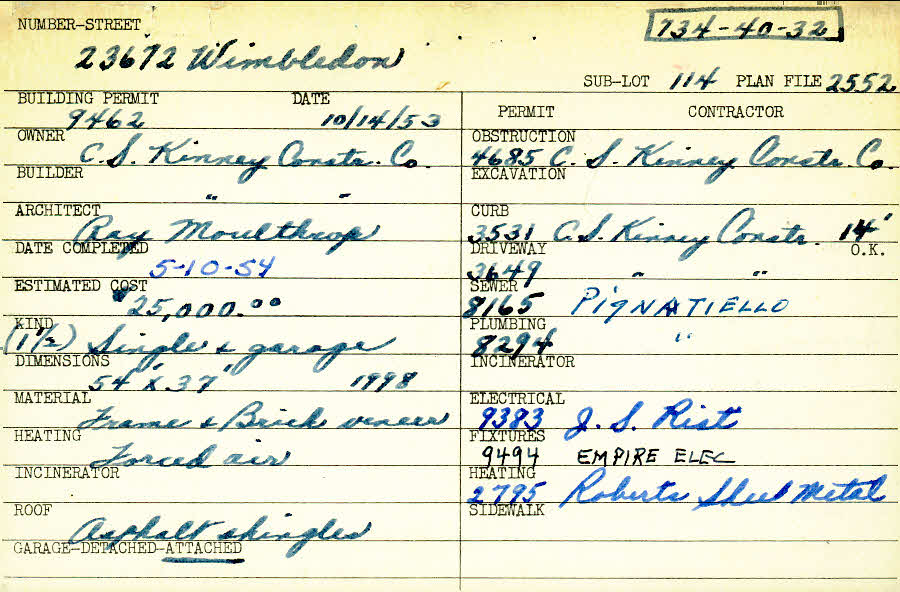 NUMBER-STREET
734-40-32
23672 Wimbledon
SUB-LOT 114 PLAN FILE 2552
BUILDING PERMIT DATE
9462 10/14/53
OWNER
C. S. Kinney Constr. Co.
BUILDER
" "
ARCHITECT
Ray Moulthrop
DATE COMPLETED
5-10-54
ESTIMATED COST
$25,000.00
KIND
(1 1/2) Single & garage
DIMENSIONS
54' x 37' 1998
MATERIAL
Frame & Brick veneer
HEATING
Forced air
INCINERATOR
ROOF
Asphalt shingles
GARAGE-DETACHED-ATTACHED
PERMIT CONTRACTOR
OBSTRUCTION
4685 C. S. Kinney Constr. Co.
EXCAVATION
CURB
3531 C. S. Kinney Constr. 14'
DRIVEWAY O.K.
3649 " "
SEWER
8165 PIGNATIELLO
PLUMBING
8294 "
INCINERATOR
ELECTRICAL
9383 J. S. Rist
FIXTURES
9494 EMPIRE ELEC
HEATING
2795 Roberts Sheet Metal
SIDEWALK